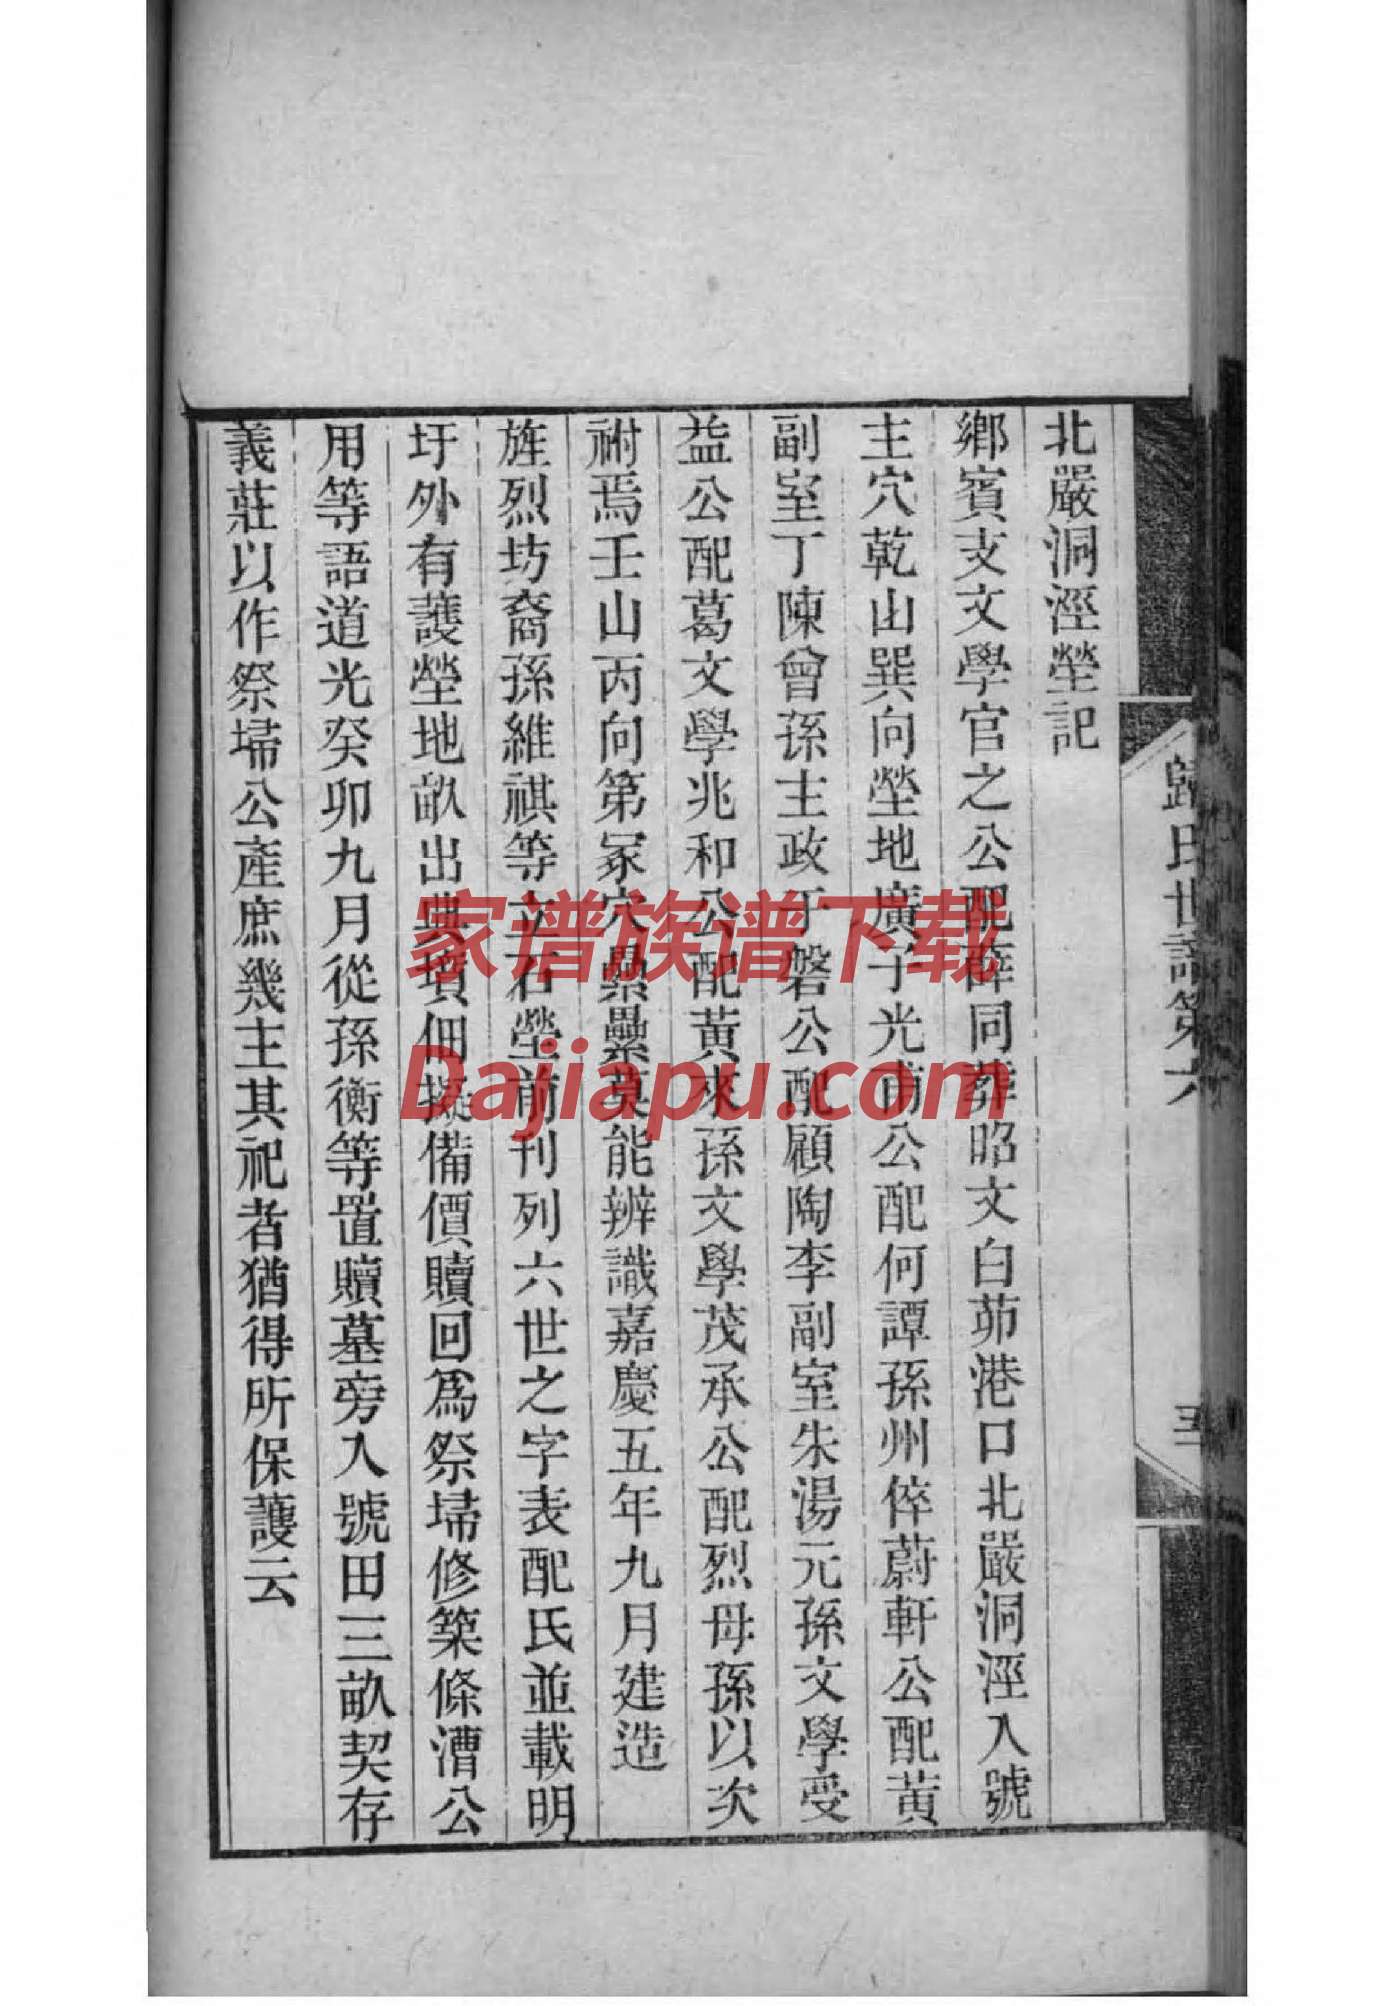 北嚴洞涇塋記
鄉賓支文學官之公配薛同葬昭文白茆港口北嚴洞涇入號
主穴乾山巽向塋地廣子光甫公配何譚孫州倅蔚軒公配黃
副室丁陳曾孫主政于磐公配顧陶李副室朱湯元孫文學受
益公配葛文學兆和公配黃來孫文學茂承公配烈母孫以次
祔焉壬山丙向第冢穴纍纍莫能辨識嘉慶五年九月建造
旌烈坊裔孫維祺等立石塋前刊列六世之字表配氏並載明
圩外有護塋地畝出典項佃擬備價贖回爲祭埽修築條漕公
用等語道光癸卯九月從孫衡等置贖墓旁入號田三畝契存
義莊以作祭埽公產庶幾主其祀者猶得所保護云
歸氏世譜第六
家谱族谱下载
Dajiapu.com